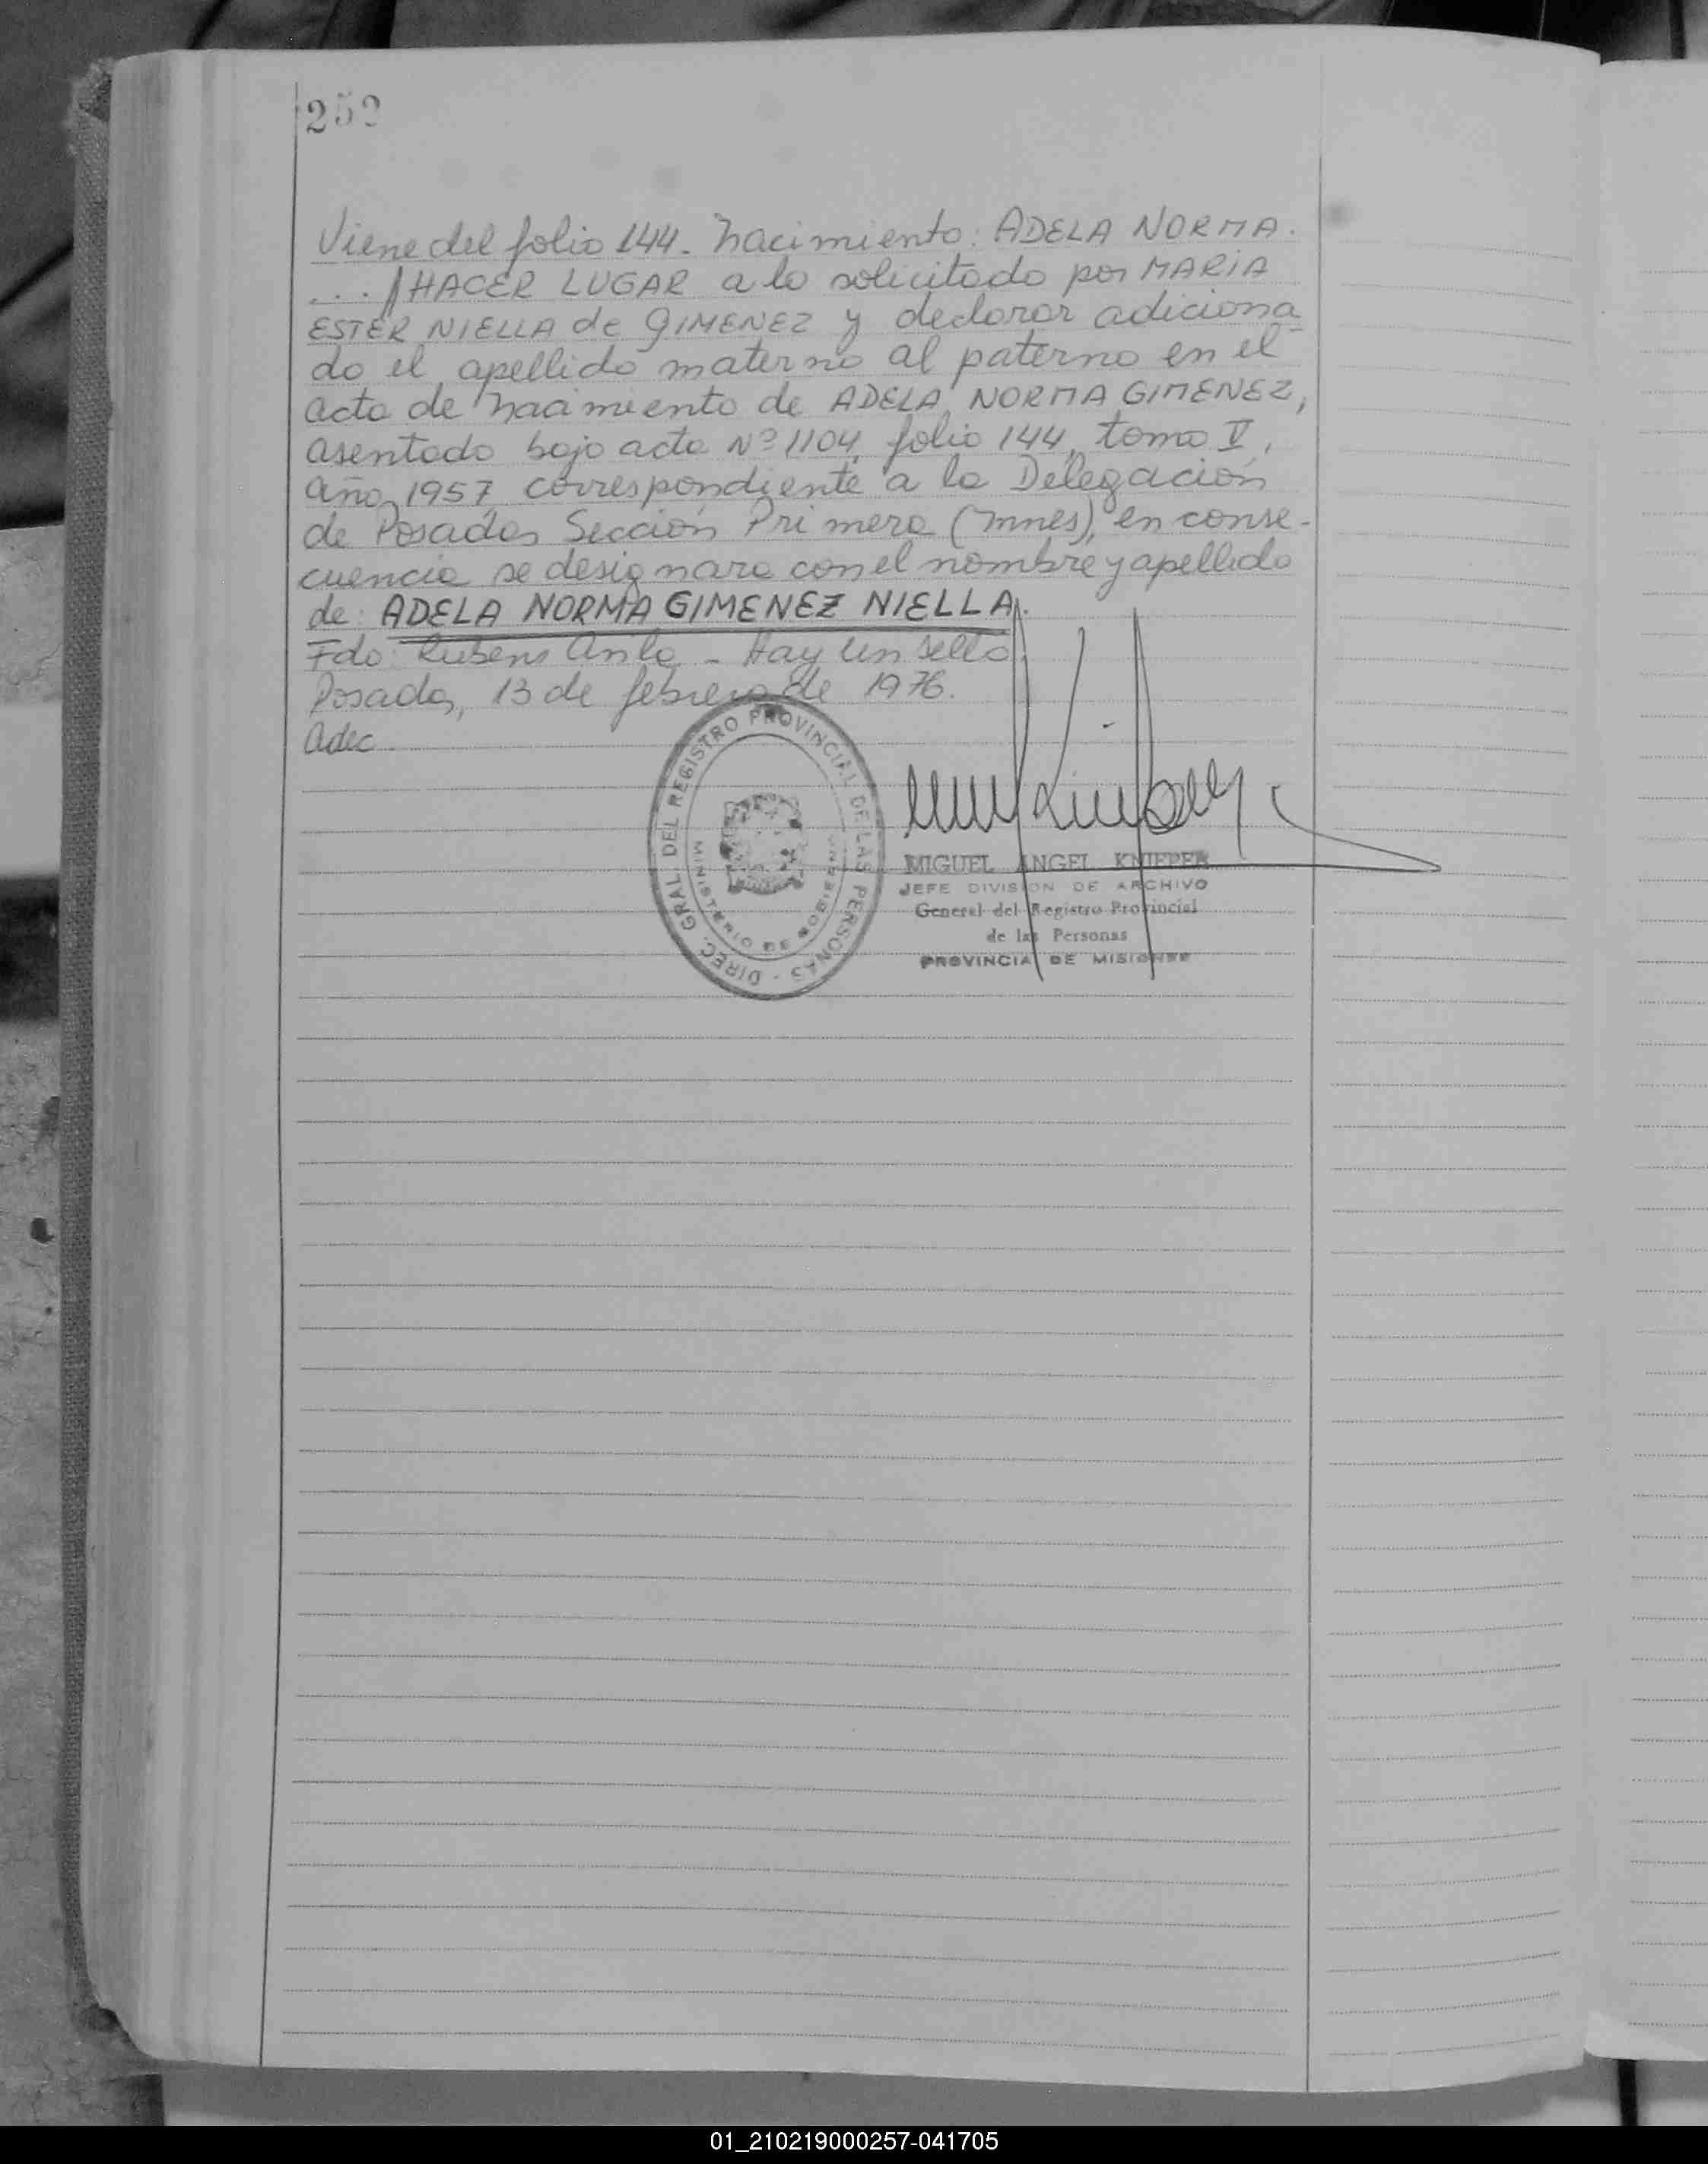 252
Viene del folio 144. Nacimiento: ADELA NORMA.
... //HACER LUGAR a lo solicitado por MARIA
ESTER NIELLA de GIMENEZ y declarar adiciona
do el apellido materno al paterno en el
acta de nacimiento de ADELA NORMA GIMENEZ,
asentado bajo acta Nº 1104, folio 144, tomo V,
año 1957 correspondiente a la Delegación
de Posadas Sección Primera (Mnes), en conse-
cuencia se designara con el nombre y apellido
de: ADELA NORMA GIMENEZ NIELLA.
Fdo: Rubens - Hay un sello.
Posadas, 13 de febrero de 1976.
adec.
DIREC. GRAL. DEL REGISTRO PROVINCIAL DE LAS PERSONAS -
MINISTERIO DE GOBIERNO
MIGUEL ANGEL KNIEPER
JEFE DIVISION DE ARCHIVO
General del Registro Provincial
de las Personas
PROVINCIA DE MISIONES
01_210219000257-041705